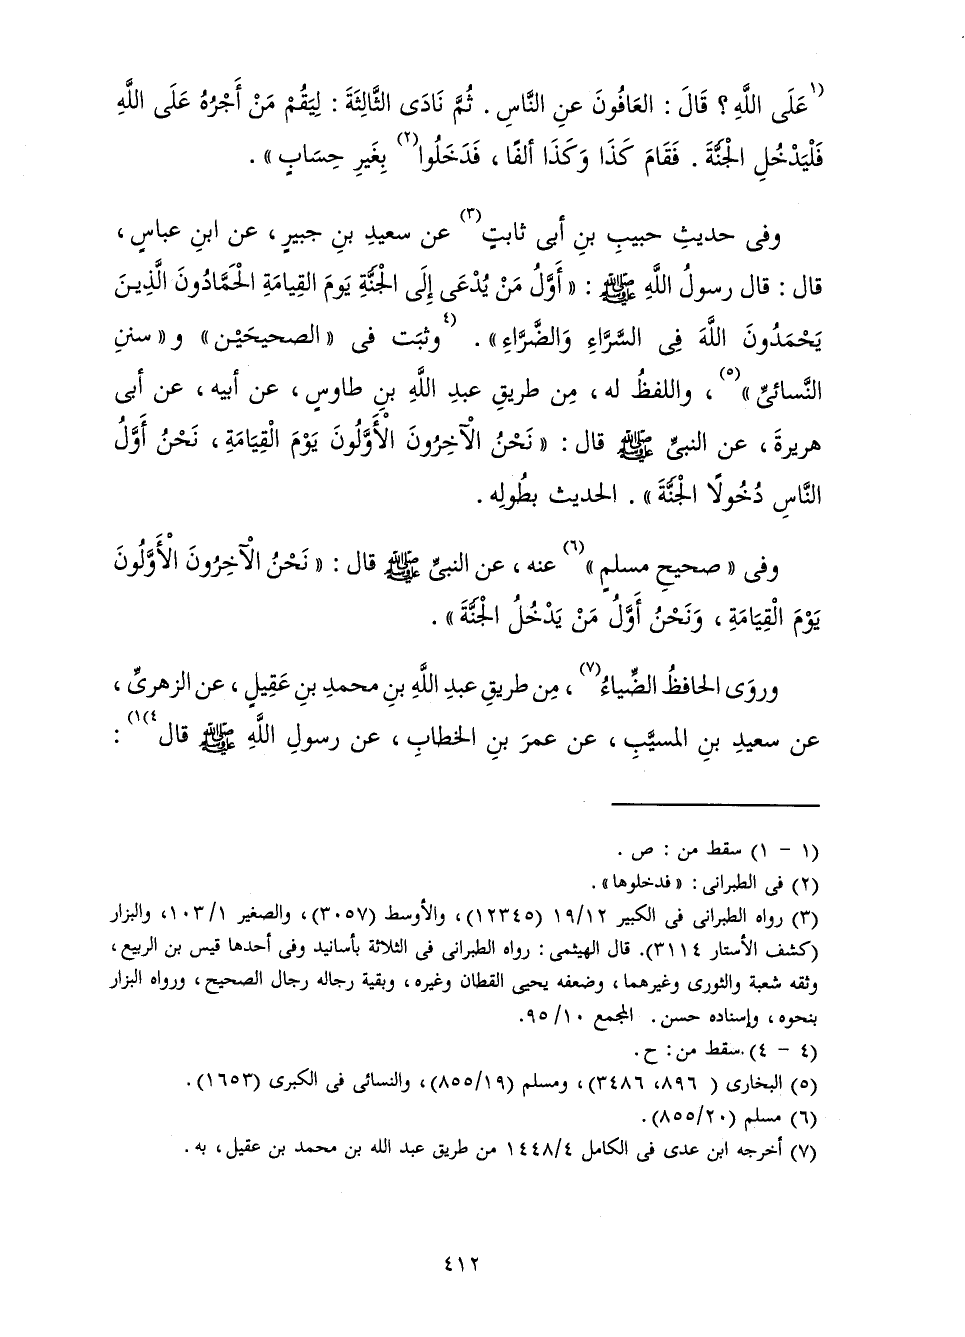 (١عَلَى اللَّهِ ؟ قَالَ : العَافُونَ عنِ النَّاسِ . ثُمَّ نَادَى الثَّالِثَةَ : لِيَقُمْ مَنْ أَجْرُهُ عَلَى اللَّهِ
فَلْيَدْخُلِ الجَنَّةَ . فَقَامَ كَذَا وَكَذَا ألفًا ، فَدَخَلُوا(٢) بِغَيرِ حِسَابٍ» .
وفى حديثِ حبيبِ بنِ أبى ثابتٍ(٣) عن سعيدِ بنِ جبيرٍ ، عن ابنِ عباسٍ ،
قال : قال رسولُ اللَّهِ ﷺ : «أَوَّلُ مَنْ يُدْعَى إِلَى الجَنَّةِ يَومَ القِيامَةِ الحَمَّادُونَ الَّذِينَ
يَحْمَدُونَ اللَّهَ فِى السَّرَّاءِ وَالضَّرَّاءِ» . (٤وثبَت فى «الصحيحَيْن» و«سننِ
النَّسائىِّ»(٥) ، واللفظُ له ، مِن طريقِ عبدِ اللَّهِ بنِ طاوسٍ ، عن أبيه ، عن أبى
هريرةَ ، عن النبىِّ ﷺ قال : «نَحْنُ الْآخِرُونَ الْأَوَّلُونَ يَوْمَ الْقِيَامَةِ ، نَحْنُ أَوَّلُ
النَّاسِ دُخُولًا الجَنَّةَ» . الحديث بطُولِه .
وفى «صحيحِ مسلمٍ»(٦) عنه ، عن النبىِّ ﷺ قال : «نَحْنُ الْآخِرُونَ الْأَوَّلُونَ
يَوْمَ الْقِيَامَةِ ، وَنَحْنُ أَوَّلُ مَنْ يَدْخُلُ الجَنَّةَ» .
وروَى الحافظُ الضِّياءُ(٧) ، مِن طريقِ عبدِ اللَّهِ بنِ محمدِ بنِ عَقِيلٍ ، عن الزهرىِّ ،
عن سعيدِ بنِ المسيَّبِ ، عن عمرَ بنِ الخطابِ ، عن رسولِ اللَّهِ ﷺ قال٤)١) :
(١ - ١) سقط من : ص .
(٢) فى الطبرانى : «فدخلوها» .
(٣) رواه الطبرانى فى الكبير ١٩/١٢ (١٢٣٤٥)، والأوسط (٣٠٥٧)، والصغير ١٠٣/١، والبزار
(كشف الأستار ٣١١٤). قال الهيثمى : رواه الطبرانى فى الثلاثة بأسانيد وفى أحدها قيس بن الربيع ،
وثقه شعبة والثورى وغيرهما ، وضعفه يحيى القطان وغيره ، وبقية رجاله رجال الصحيح ، ورواه البزار
بنحوه ، وإسناده حسن . المجمع ٩٥/١٠.
(٤ - ٤) سقط من: ح .
(٥) البخارى ( ٨٩٦، ٣٤٨٦)، ومسلم (٨٥٥/١٩)، والنسائى فى الكبرى (١٦٥٣).
(٦) مسلم (٨٥٥/٢٠).
(٧) أخرجه ابن عدى فى الكامل ١٤٤٨/٤ من طريق عبد الله بن محمد بن عقيل ، به .
٤١٢